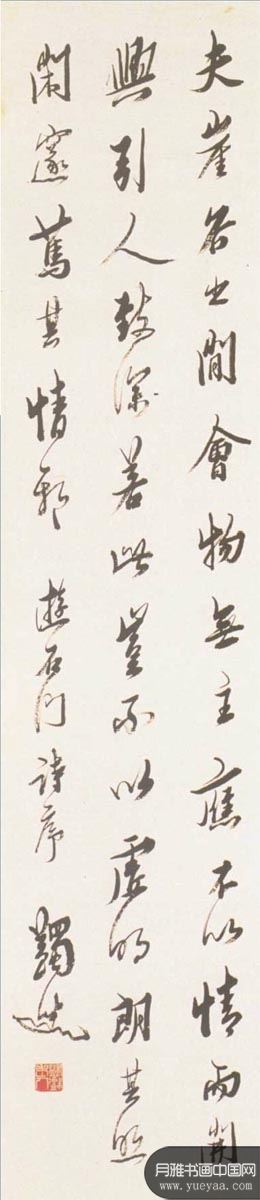 夫崖谷之間會物無主應不以情而開
興引人致深若此豈不以虛明朗其照
閑邃篤其情邪 遊石門詩序 蠲叟
月雅书画中国网
www.yueyaa.com